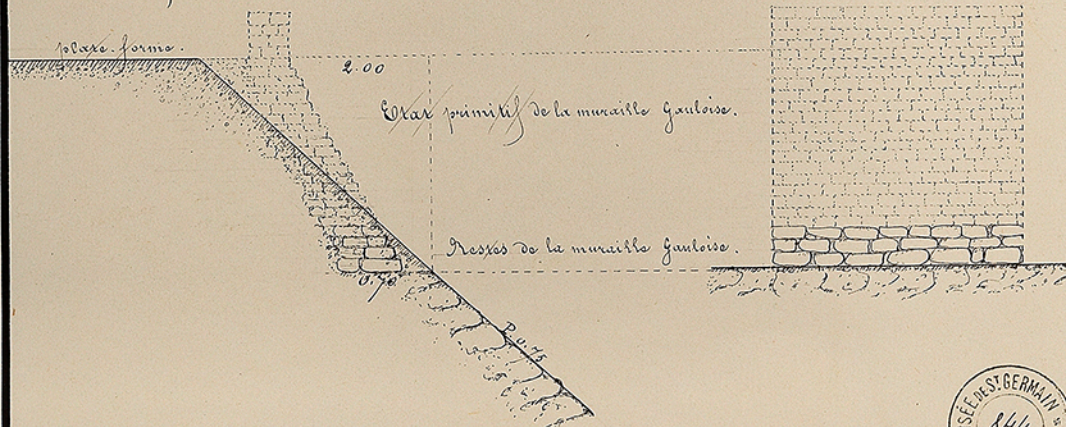 plate-forme.
2.00
Etat primitif de la muraille Gauloise.
Restes de la muraille Gauloise.
0.70
P. 0.75
SÉE DE ST GERMAIN
844